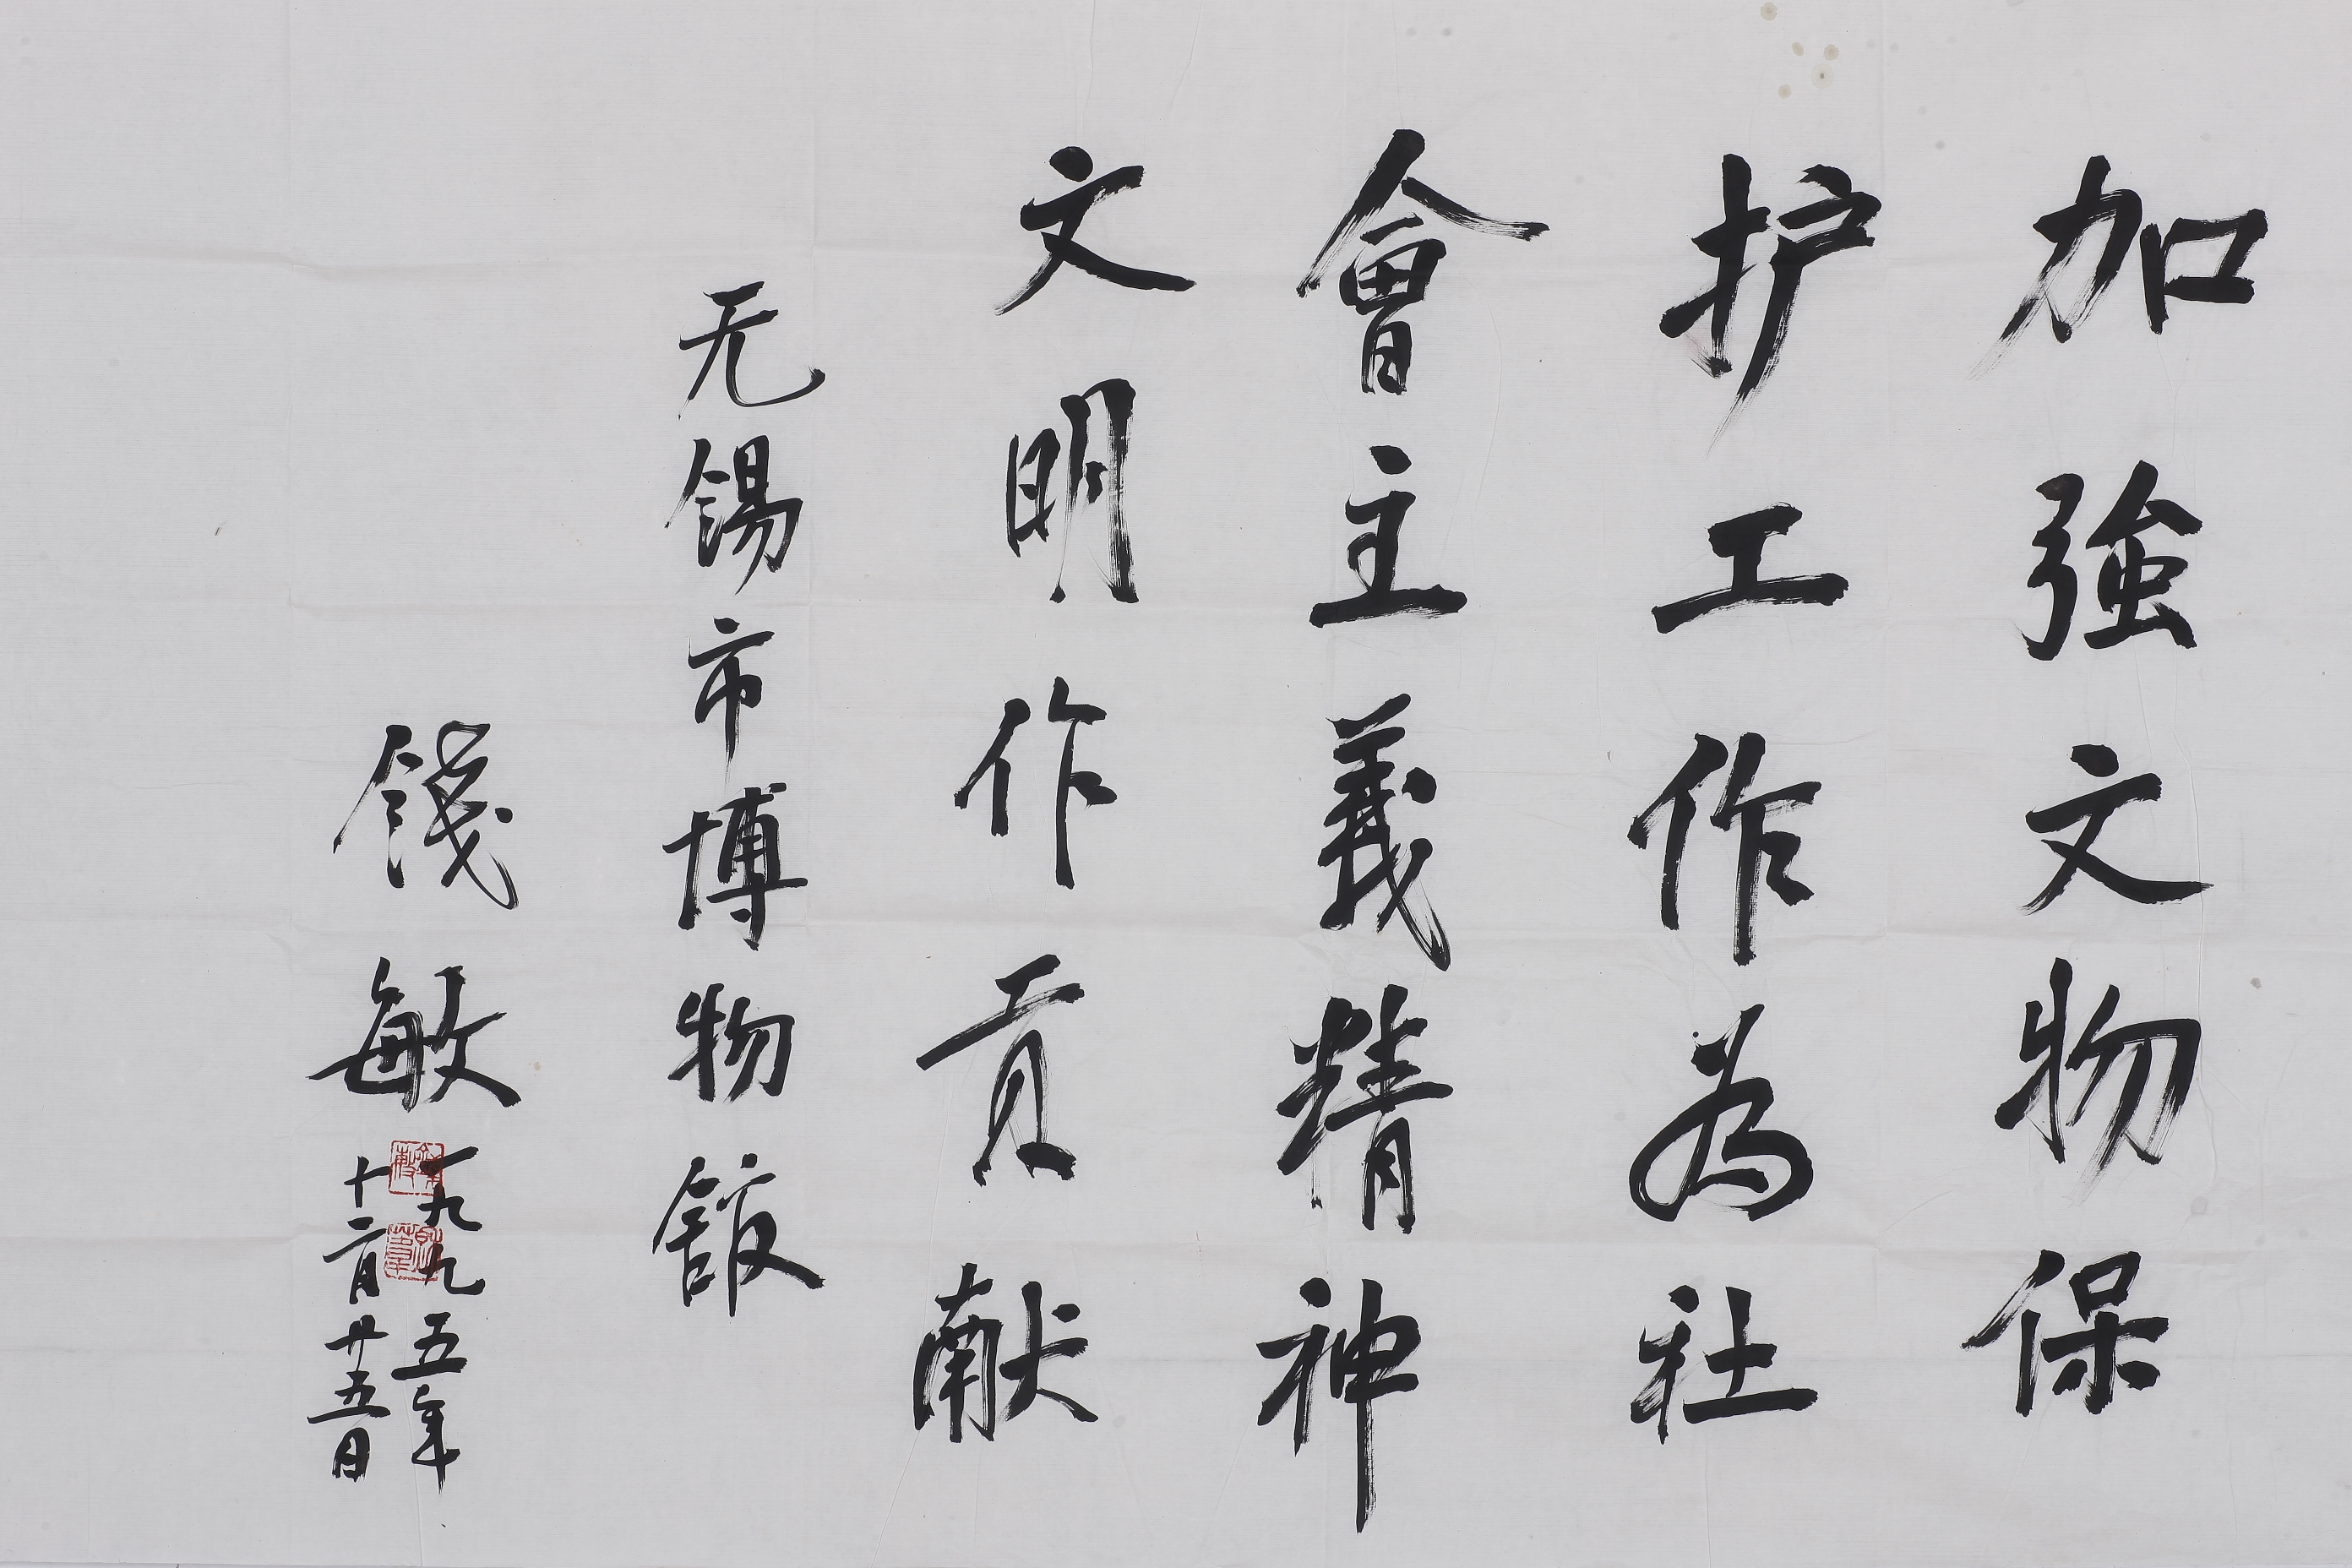 加強文物保
护工作為社
會主義精神
文明作贡献
无锡市博物館
錢敏
一九九五年
十二月廿五日